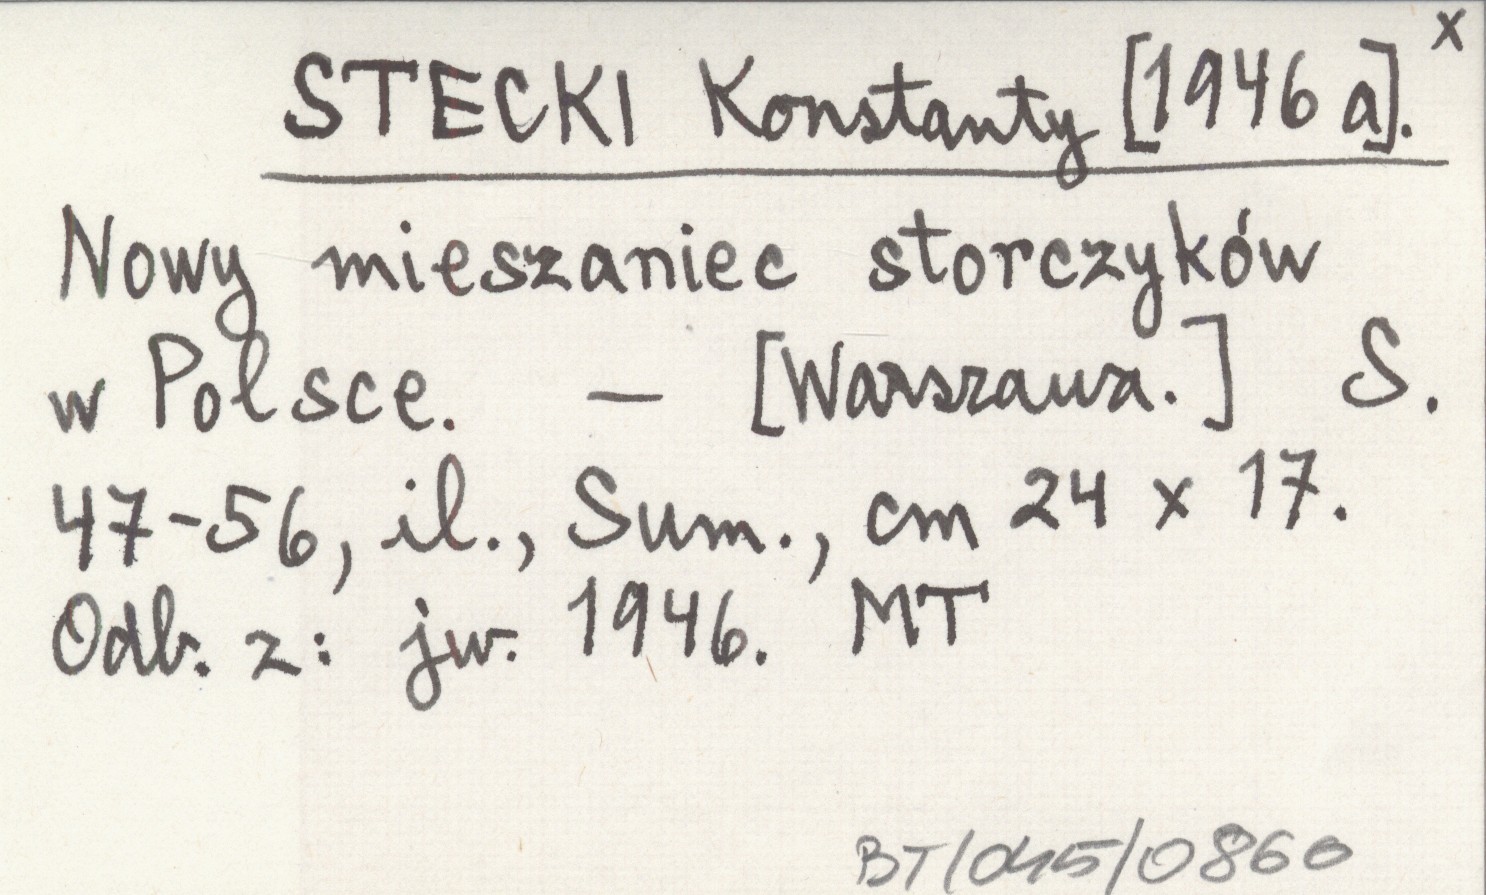 STECKI Konstanty [1946 a]. x
Nowy mieszaniec storczyków
w Polsce. – [Warszawa.] S.
47-56, il., Sum., cm 24 x 17.
Odb. z: jw. 1946. MT
BT/045/0860